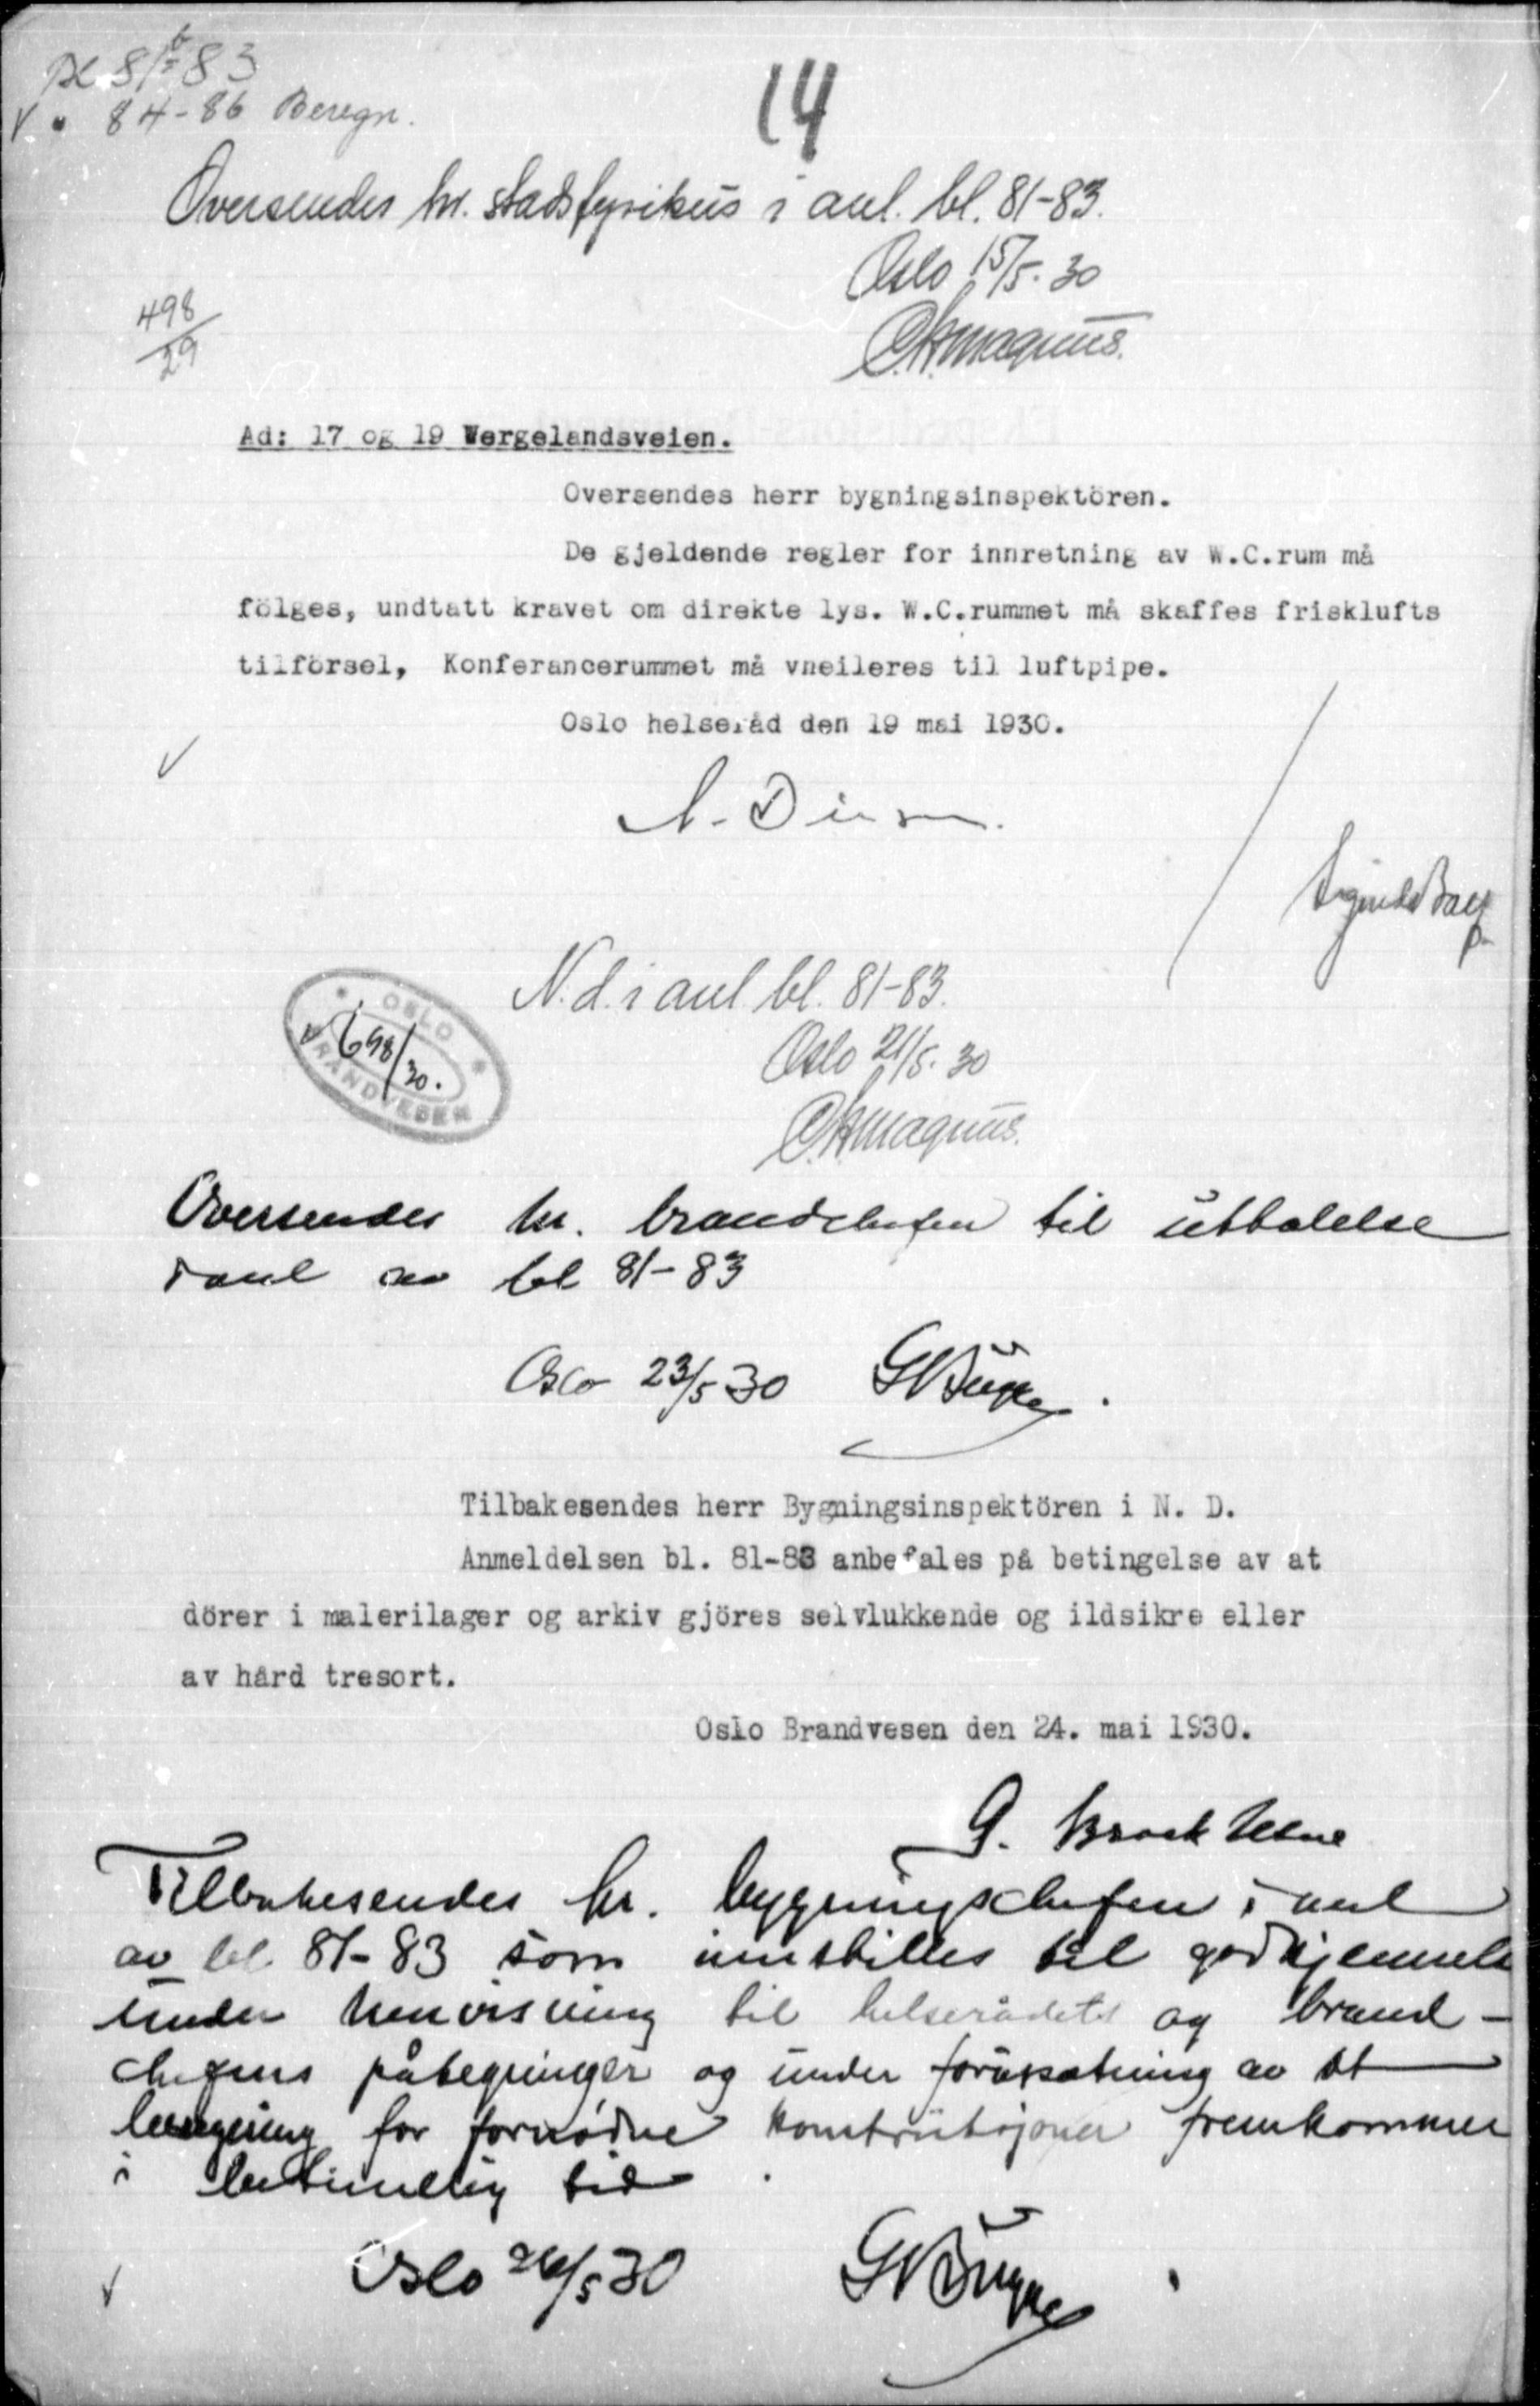 Bl 81-83
V " 84-86 Beregn.
14
Oversendes hr. stadsfysikus i anl. bl. 81-83.
Oslo 15/5-30
498/29
Magnus.
Ad: 17 og 19 Wergelandsveien.
Oversendes herr bygningsinspektören.
De gjeldende regler for innretning av W.C.rum må
fölges, undtatt kravet om direkte lys. W.C.rummet må skaffes frisklufts
tilförsel, Konferancerummet må vneileres til luftpipe.
Oslo helseråd den 19 mai 1930.
N.d. i anl. bl. 81-83.
OSLO
698/30.
BRANDVESEN
Oslo 21/5-30
Magnus.
Oversendes hr. brandchefen til uttalelse
i anl av bl 81-83
Oslo 23/5 30
Tilbakesendes herr Bygningsinspektören i N. D.
Anmeldelsen bl. 81-83 anbefales på betingelse av at
dörer i malerilager og arkiv gjöres selvlukkende og ildsikre eller
av hård tresort.
Oslo Brandvesen den 24. mai 1930.
G. Brock Utne
Tilbakesendes hr. bygningschefen i anl
av bl 81-83 som innstilles til godkjennelse
under henvisning til helserådets og brand-
chefens påtegninger og under forutsetning av at
beregning for fornødne konstruksjoner fremkommer
i betimelig tid.
Oslo 26/5 30